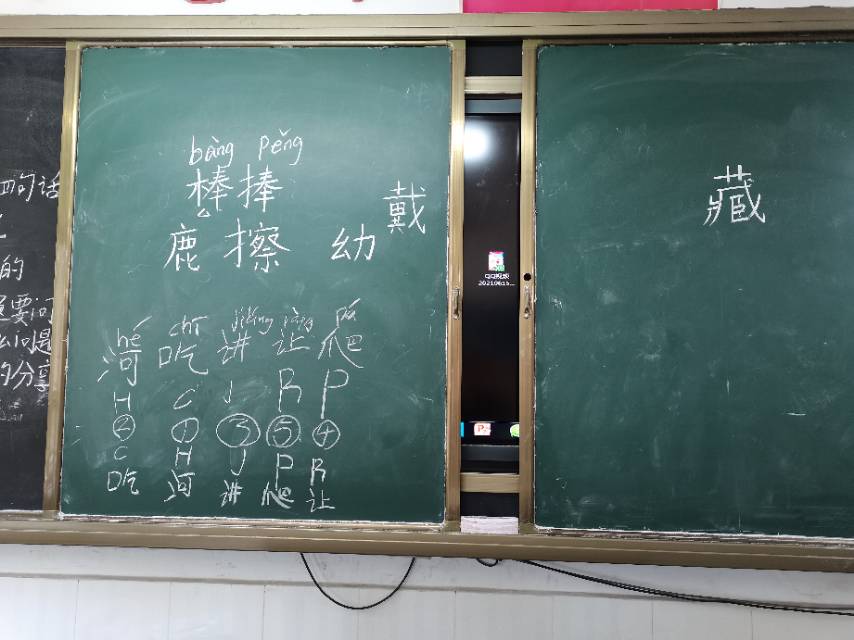 四句话
的
要问
问是
的分享
bàng pěng
棒捧
戴
鹿擦 幼
hé chī jiǎng ràng pá
河 吃 讲 让 爬
H C J R P
② ① ③ ⑤ ④
C H J P R
吃 河 讲 爬 让
藏
QQ视频